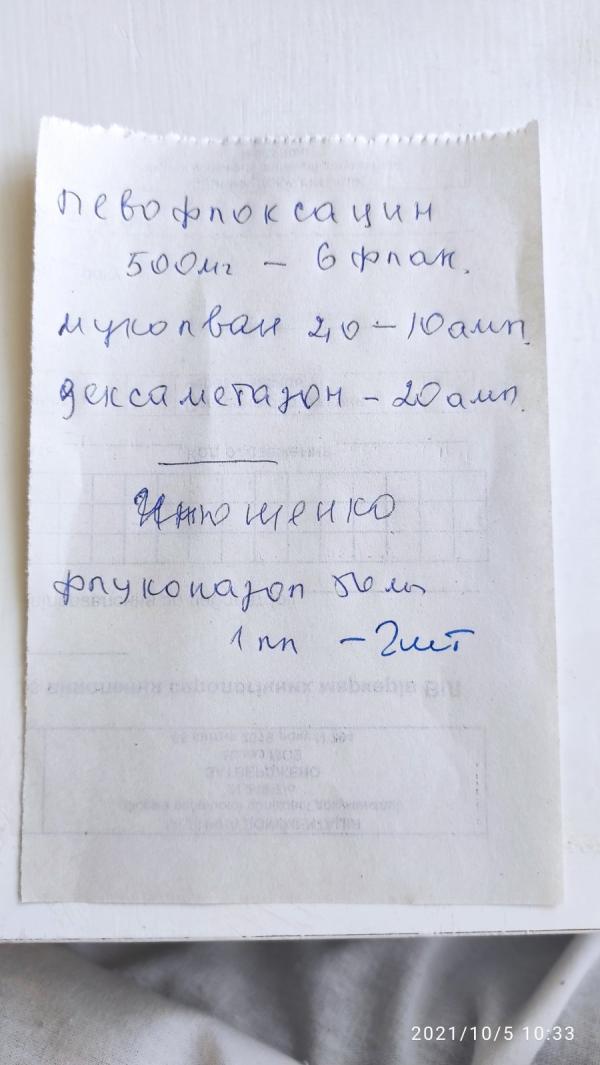 левофлоксацин
500мг – 6 флак.
муколван 2,0 – 10 амп.
дексаметазон – 20 амп.
флуконазол 50 мг
1 пл – 2шт
2021/10/5 10:33